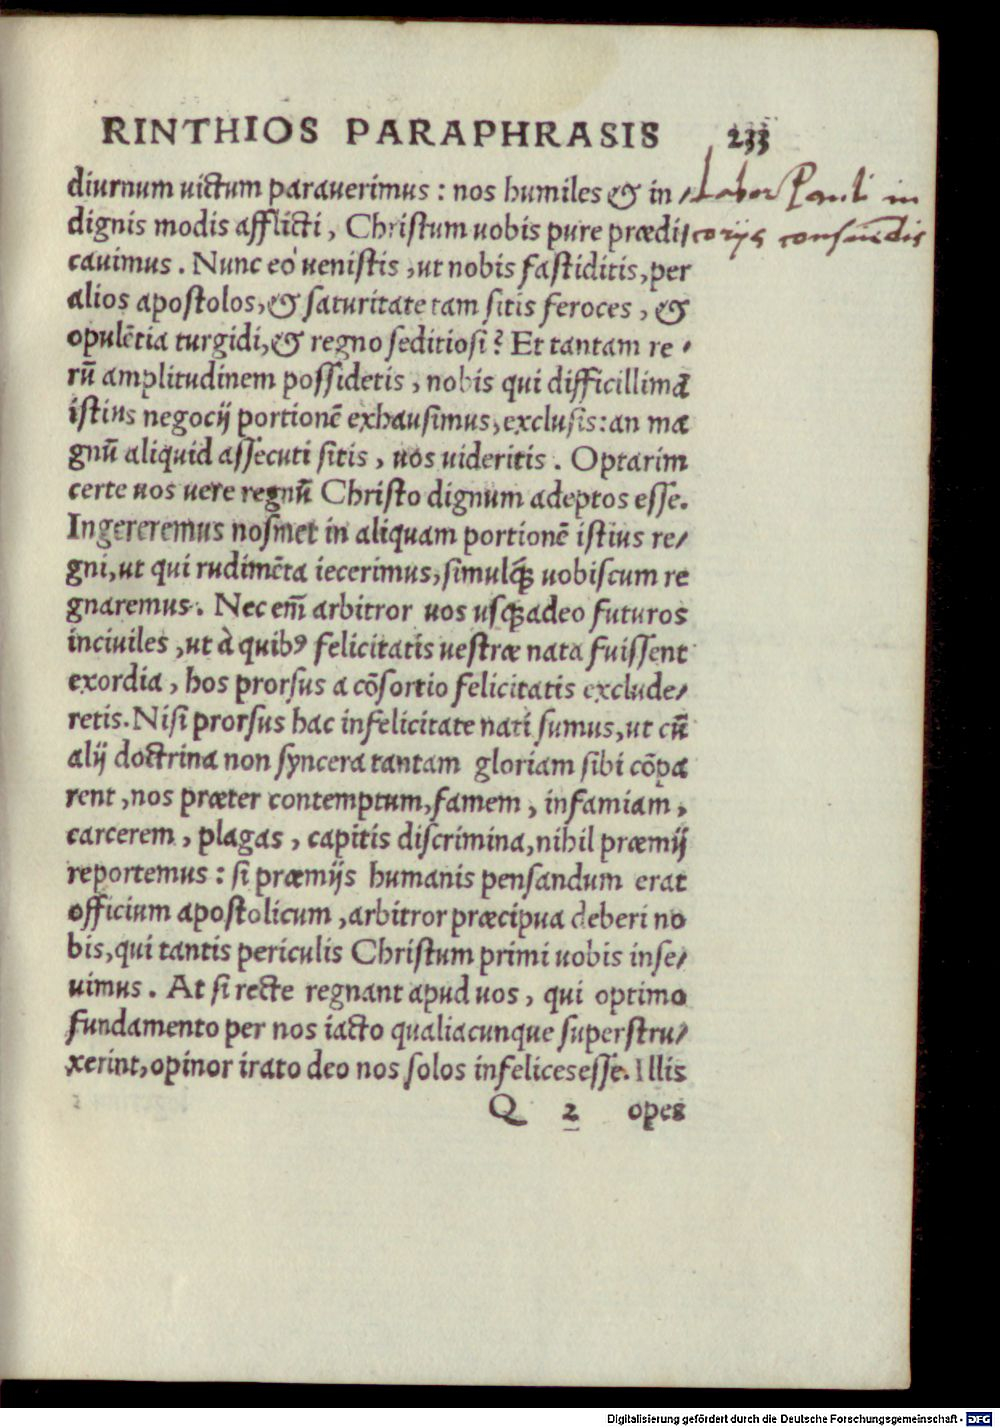 RINTHIOS PARAPHRASIS 233
diurnum uictum parauerimus : nos humiles & in⸗
dignis modis afflicti, Christum uobis pure prædi⸗
cauimus. Nunc eò uenistis, ut nobis fastiditis, per
alios apostolos, & saturitate tam sitis feroces, &
opulẽtia turgidi, & regno seditiosi? Et tantam re⸗
rũ amplitudinem possidetis, nobis qui difficillimã
istius negocij portionẽ exhausimus, exclusis: an ma
gnũ aliquid assecuti sitis, uos uideritis. Optarim
certe uos uere regnũ Christo dignum adeptos esse.
Ingereremus nosmet in aliquam portionẽ istius re⸗
gni, ut qui rudimẽta iecerimus, simulq̃ꝫ uobiscum re
gnaremus. Nec em̃ arbitror uos usq̃ꝫadeo futuros
inciuiles, ut à quibꝰ felicitatis uestræ nata fuissent
exordia, hos prorsus a cõsortio felicitatis exclude⸗
retis. Nisi prorsus hac infelicitate nati sumus, ut cũ
alij doctrina non syncera tantam gloriam sibi cõpa
rent, nos præter contemptum, famem, infamiam,
carcerem, plagas, capitis discrimina, nihil præmij
reportemus : si præmijs humanis pensandum erat
officium apostolicum, arbitror præcipua deberi no
bis, qui tantis periculis Christum primi uobis inse⸗
uimus. At si recte regnant apud uos, qui optimo
fundamento per nos iacto qualiacunque superstru⸗
xerint, opinor irato deo nos solos infelices esse. Illis
Q 2 opes
Labor Pauli in
corijs consuẽdis
Digitalisierung gefördert durch die Deutsche Forschungsgemeinschaft - DFG